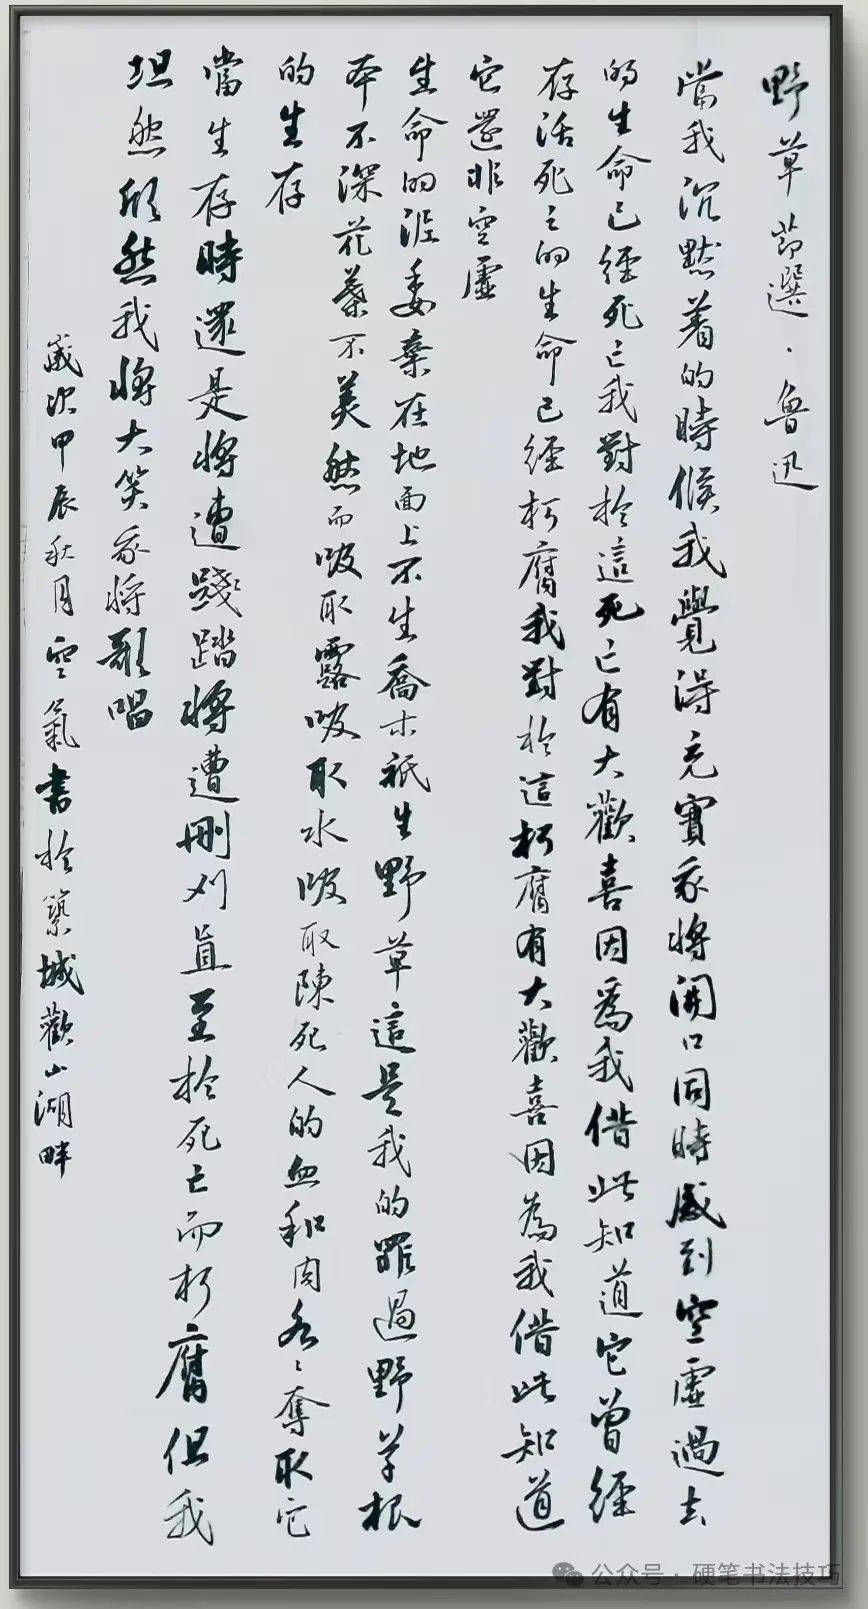 野草節選·魯迅
當我沉默着的時候我覺得充實我將開口同時感到空虛過去
的生命已經死亡我對於這死亡有大歡喜因為我借此知道它曾經
存活死亡的生命已經朽腐我對於這朽腐有大歡喜因為我借此知道
它還非空虛
生命的泥委棄在地面上不生喬木衹生野草這是我的罪過野草根
本不深花葉不美然而吸取露吸取水吸取陳死人的血和肉各各奪取它
的生存
當生存時還是將遭踐踏將遭刪刈直至於死亡而朽腐但我
坦然欣然我將大笑我將歌唱
歲次甲辰秋月空氣書於築城觀山湖畔
公众号·硬笔书法技巧